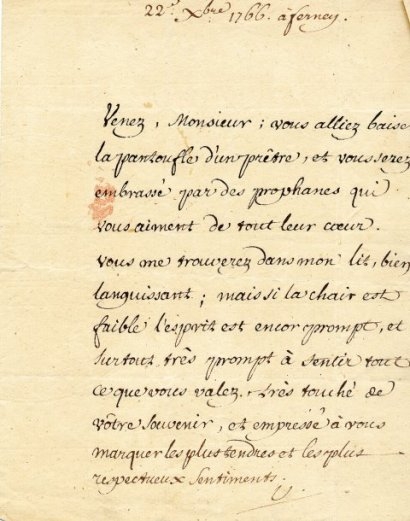 22e. Xbre 1766. à ferney.
Venez, Monsieur ; vous alliez baise
la pantoufle d'un prêtre, et vous serez
embrassé par des prophanes qui
vous aiment de tout leur cœur.
vous me trouverez dans mon lit, bien
languissant ; mais si la chair est
faible l'esprit est encor prompt, et
surtout très prompt à sentir tout
ce que vous valez. très touché de
vôtre souvenir, et empressé à vous
marquer les plus tendres et les plus
respectueux sentiments.